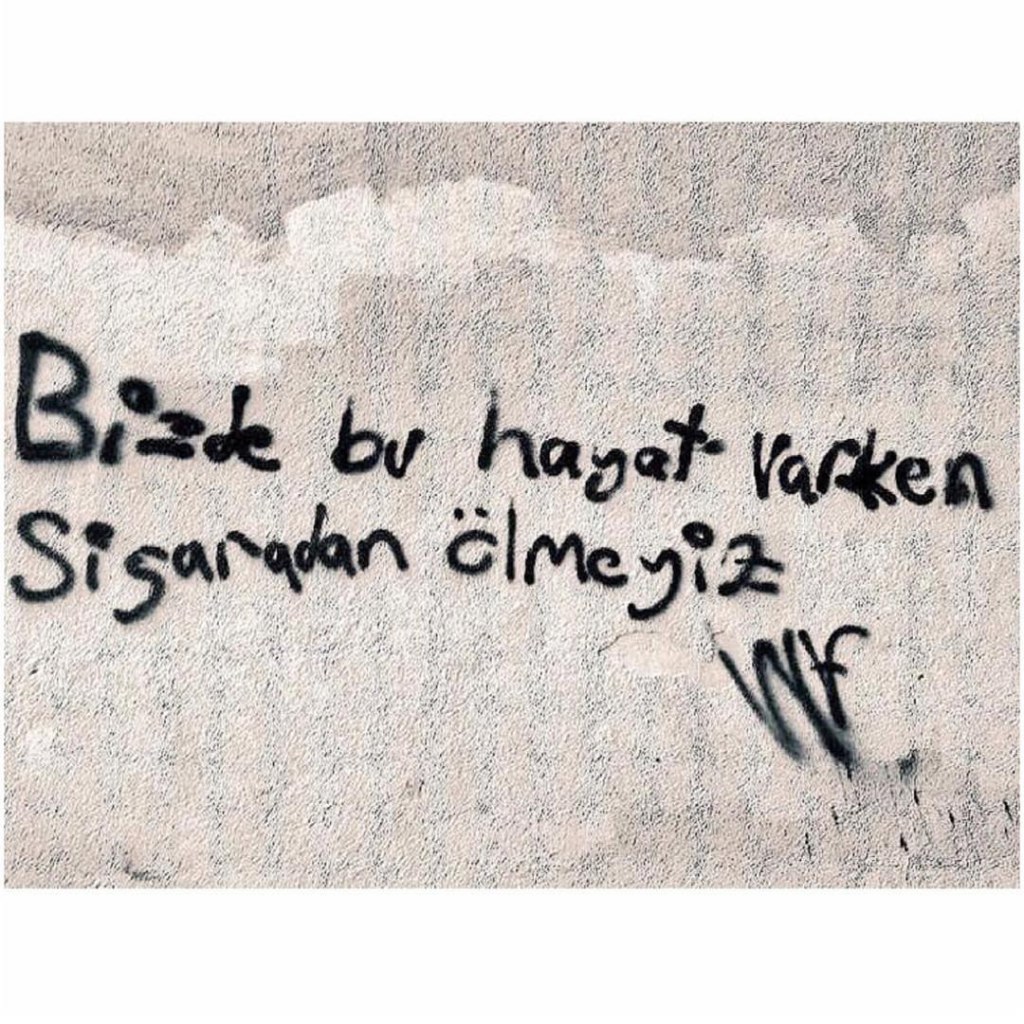 Bizde bu hayat varken
Sigaradan ölmeyiz
Wf